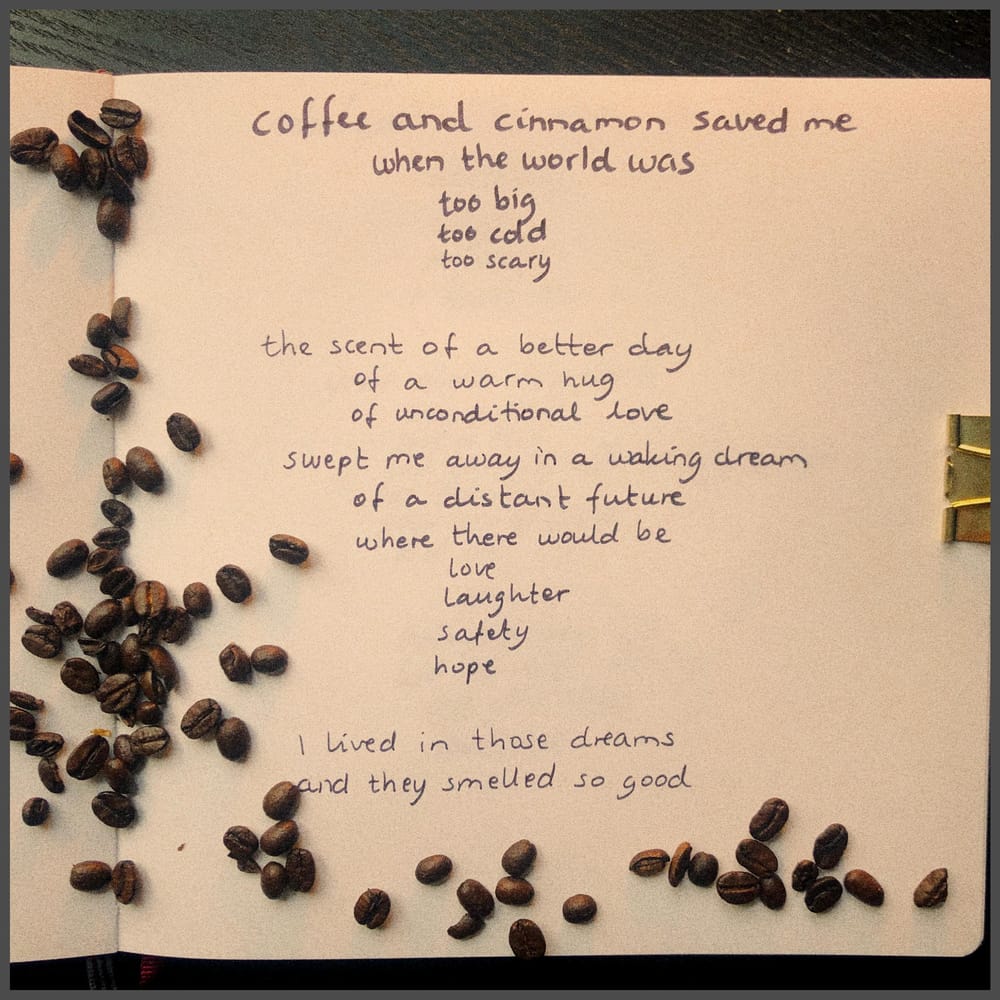 coffee and cinnamon saved me
when the world was
too big
too cold
too scary
the scent of a better day
of a warm hug
of unconditional love
swept me away in a waking dream
of a distant future
where there would be
love
laughter
safety
hope
I lived in those dreams
and they smelled so good